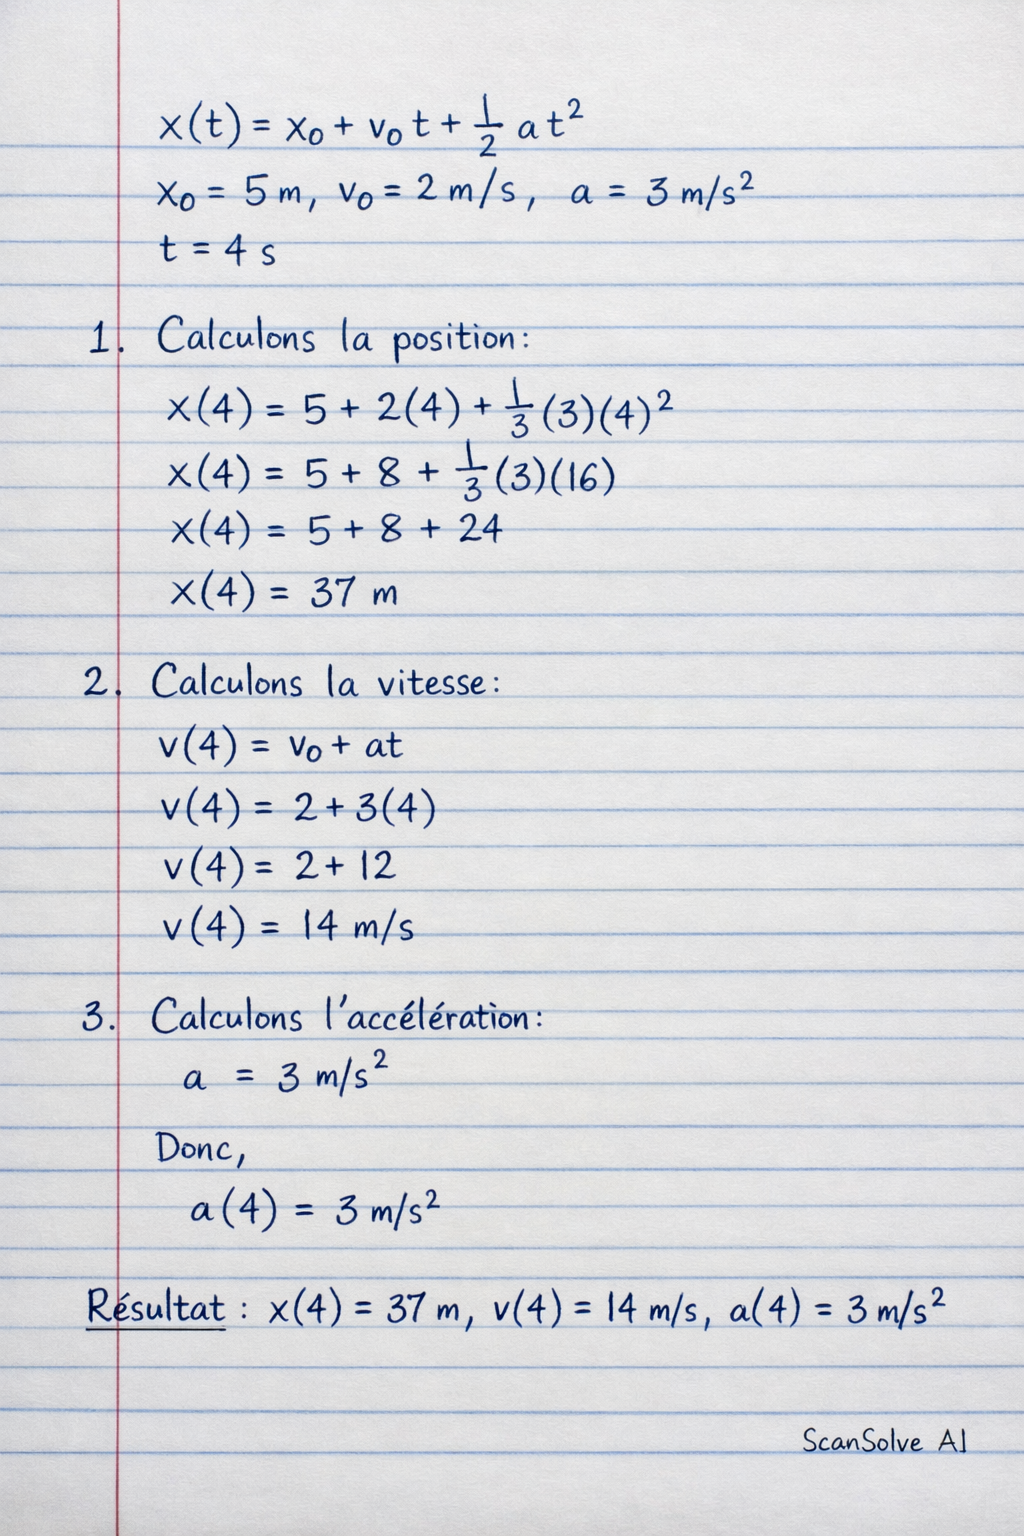 x(t) = x₀ + v₀ t + 1/2 a t²
x₀ = 5 m, v₀ = 2 m/s, a = 3 m/s²
t = 4 s
1. Calculons la position:
x(4) = 5 + 2(4) + 1/3 (3)(4)²
x(4) = 5 + 8 + 1/3 (3)(16)
x(4) = 5 + 8 + 24
x(4) = 37 m
2. Calculons la vitesse:
v(4) = v₀ + at
v(4) = 2 + 3(4)
v(4) = 2 + 12
v(4) = 14 m/s
3. Calculons l'accélération:
a = 3 m/s²
Donc,
a(4) = 3 m/s²
Résultat : x(4) = 37 m, v(4) = 14 m/s, a(4) = 3 m/s²
ScanSolve AI